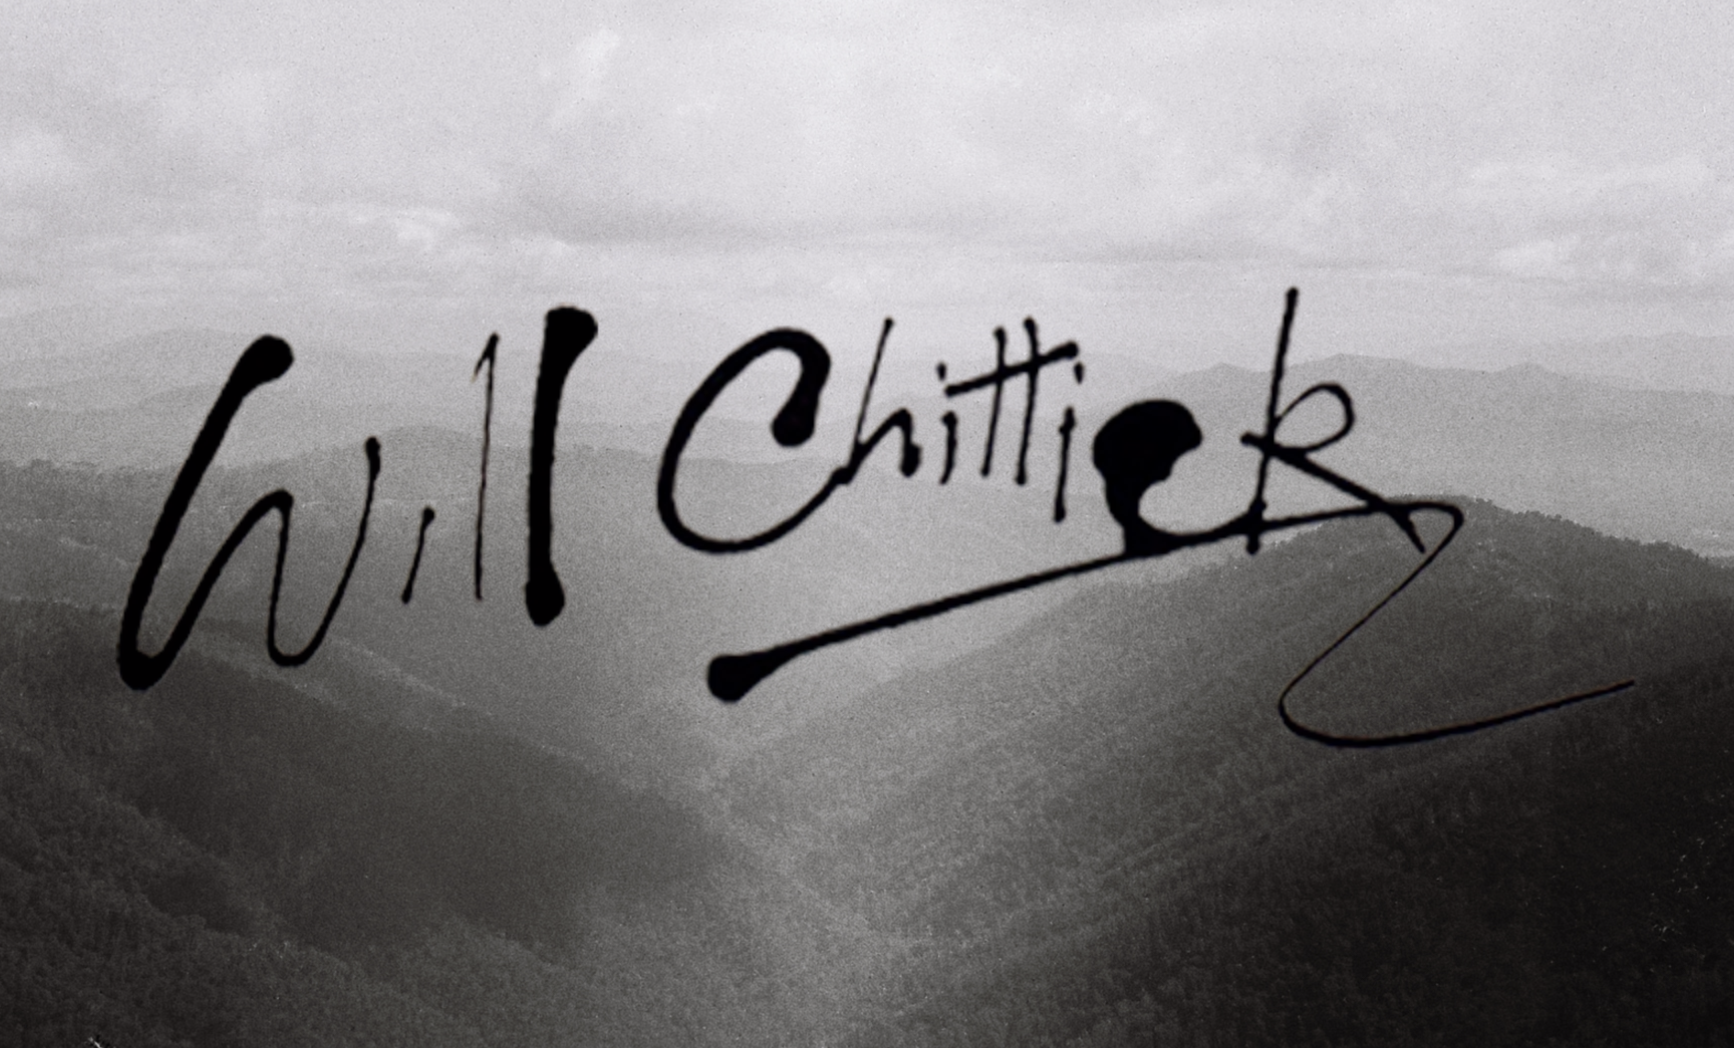 Will Chittick